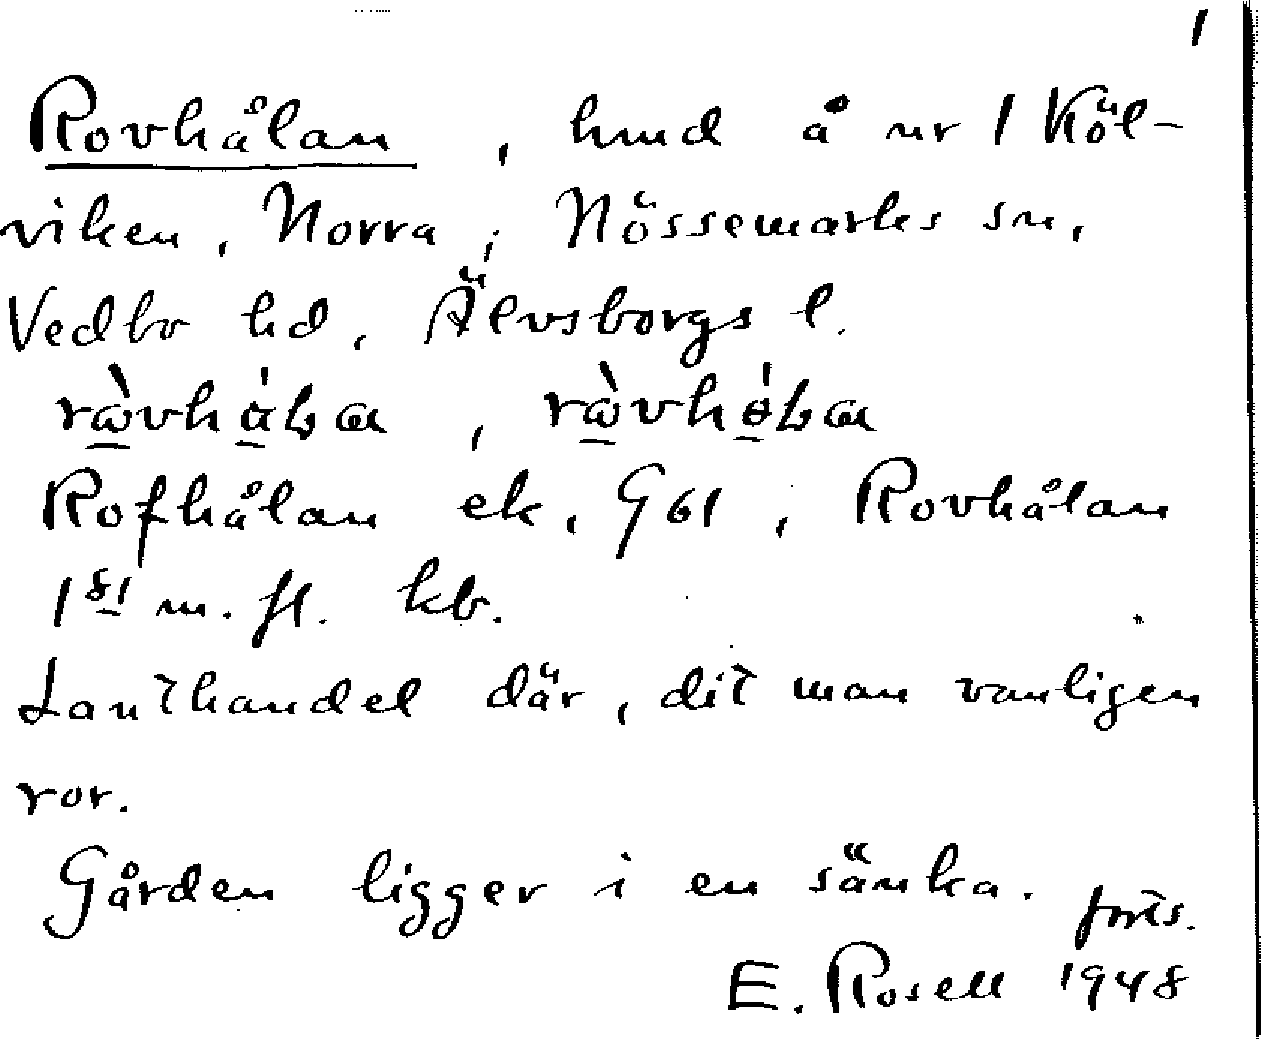 1
Rovhålan, hmd å nr 1 Köl-
viken, Norra, i Nössemarks sn,
Vedbo hd, Älvsborgs l.
Rofhålan ek. G 61, Rovhålan
1 st m. fl. kb.
Lanthandel där, dit man vanligen
ror.
Gården ligger i en sänka.
forts.
E. Rosell 1948